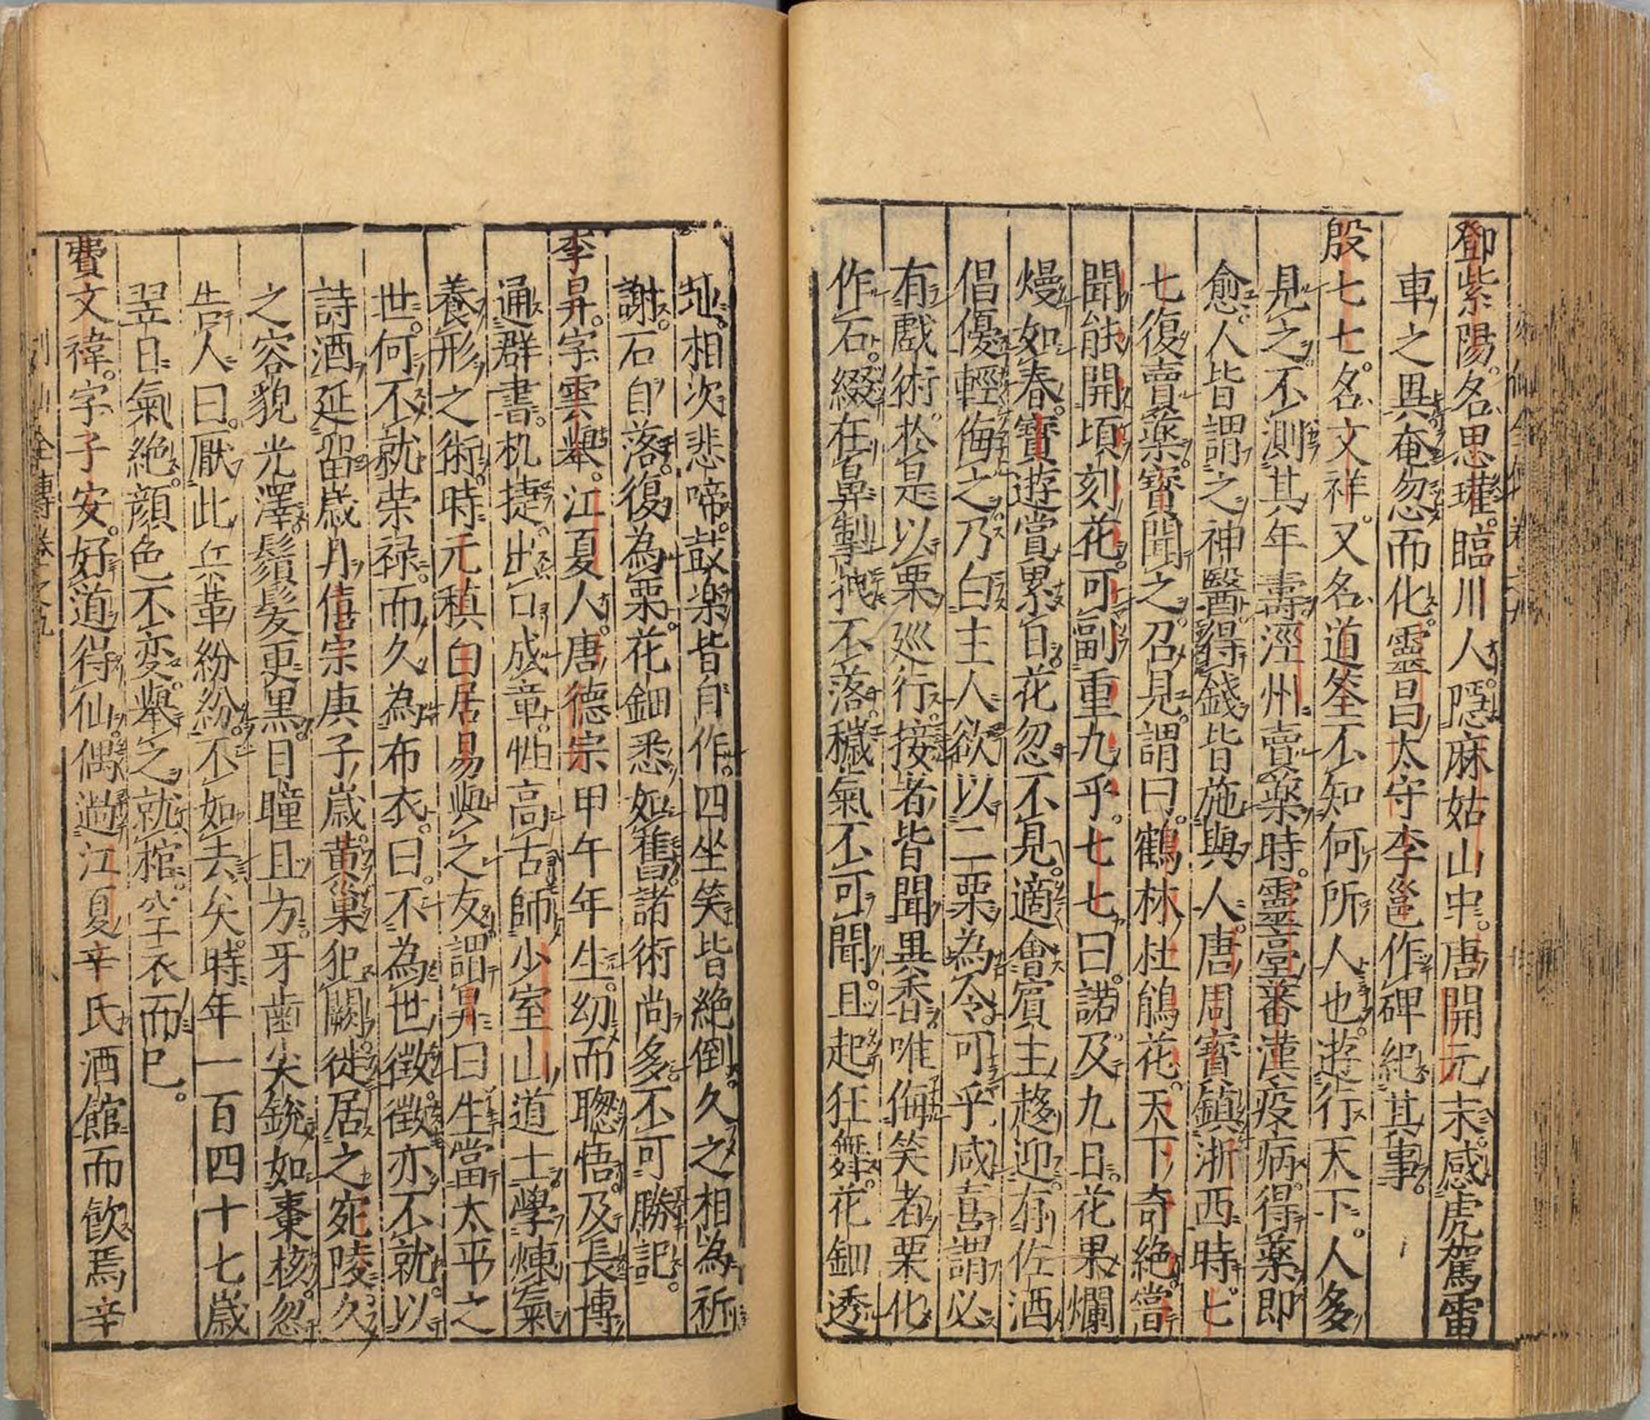 鄧紫陽名思瓘臨川人隱麻姑山中唐開元末感虎駕雷
車之異奄忽而化靈昌太守李邕作碑紀其事
殷七七名文祥又名道筌不知何所人也遊行天下人多
見之不測其年壽涇州賣薬時靈臺蕃漢疫病得薬即
愈人皆謂之神醫得錢皆施與人唐周寶鎮浙西時七
七復賣薬寶聞之召見謂曰鶴林杜鵑花天下奇絶嘗
聞能開頃刻花可副重九乎七七曰諾及九日花果爛
熳如春寶遊賞累日花忽不見適會賓主趍迎有佐酒
倡優輕侮之乃白主人欲以二栗為令可乎咸喜謂必
有戲術於是以栗巡行接者皆聞異香唯侮笑者栗化
作石綴在鼻掣拽不落穢氣不可聞且起狂舞花鈿透
地相次悲啼鼓楽皆自作四坐笑皆絶倒久之相為祈
謝石自落復為栗花鈿悉如舊諸術尚多不可勝記
李昇字雲舉江夏人唐德宗甲午年生幼而聰悟及長博
通群書机捷出口成章怕高古師少室山道士學煉氣
養形之術時元稹白居易與之友謂昇曰生當太平之
世何不就荣禄而久為布衣曰不為世徴徴亦不就以
詩酒延留歳月僖宗庚子歳黄巢犯闕徙居之宛陵久
之容貌光澤鬚髮更黒目瞳且方牙齒尖銳如棗核忽
告人曰厭此兵革紛紛不如去矣時年一百四十七歳
翌日氣絶顔色不変舉之就棺空衣而已
費文禕字子安好道得仙偶過江夏辛氏酒館而飲焉辛